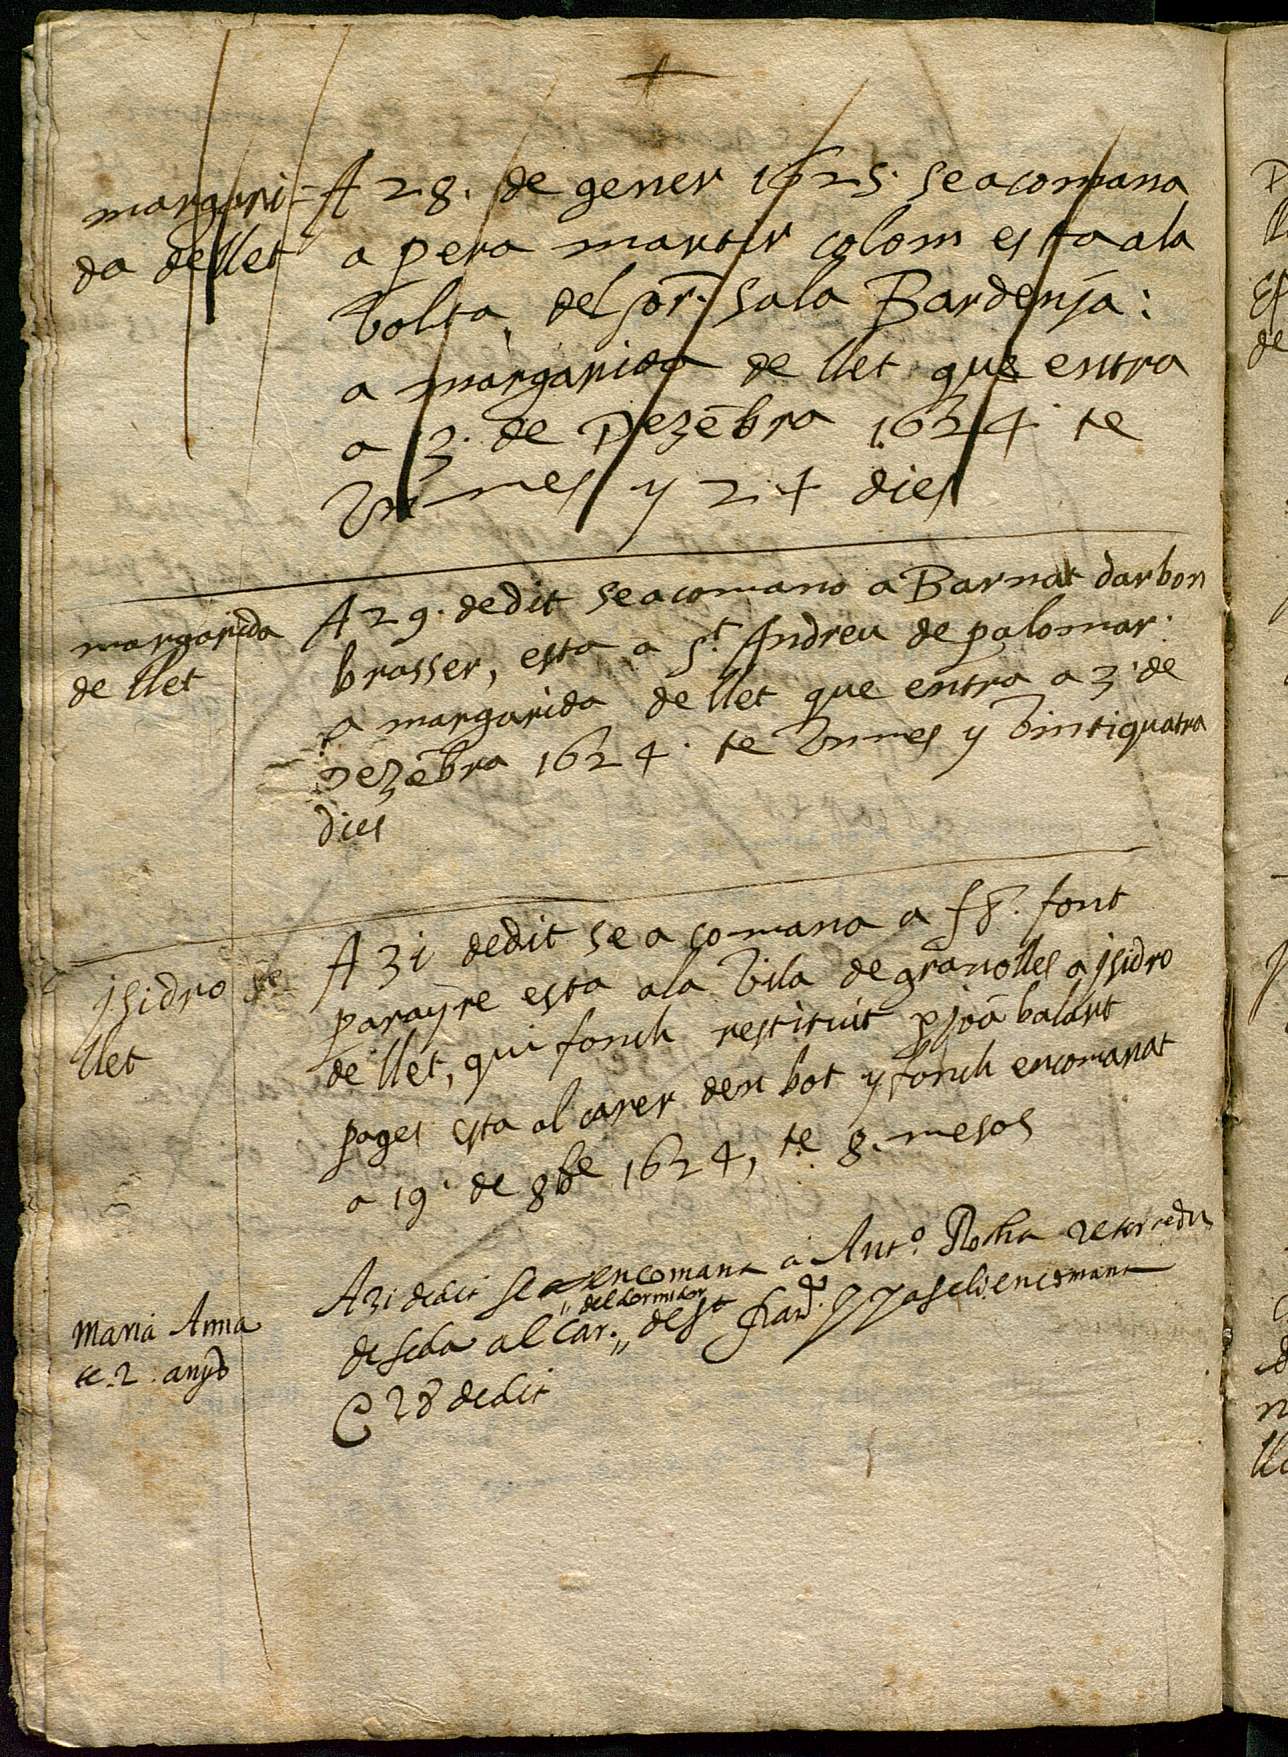 margari-
da de llet
A 28. de gener 1625. se acomana
a pera martir colom esta ala
volta del sor. sala Bardenja:
a margarida de llet que entra
a 3. de Dezẽbra 1624. te
un mes y 24 dies
margarida
de llet
A 29. de dit se acomano a Barnat darbon
brasser, esta a St. Andreu de palomar.
a margarida de llet que entra a 3. de
Dezẽbra 1624. te un mes y vintiquatra
dies
jsidro de
llet
A 31 de dit se a comana a font
parayre esta ala vila de granolles a jsidro
de llet, qui fonch restituit p joã balart
pages esta al carer den bot y fonch encomanat
a 19. de 8bre 1624, te 8. mesos
Maria Anna
te. 2. anys
A 31 de dit se a encomana a Anto. Rocha retorcedu
del dormidor
de seda al Car. de st y ja se li encomana
28 de dit